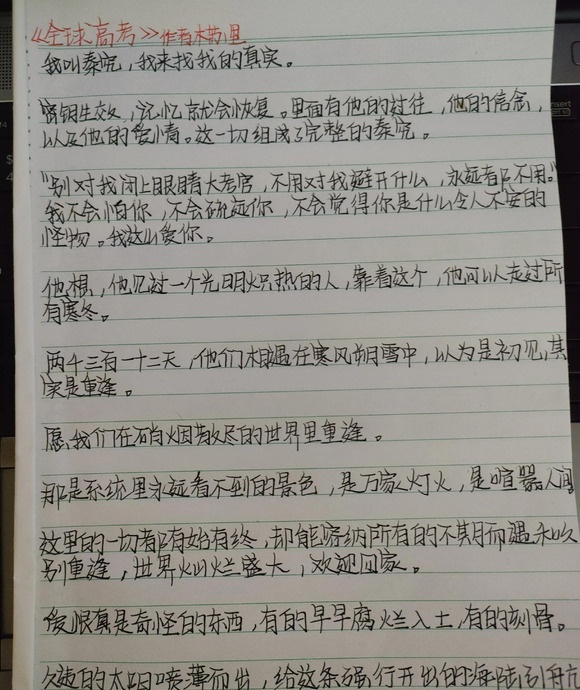 《全球高考》作者木苏里
我叫秦究，我来找我的真实。
密钥生效，记忆就会恢复。里面有他的过往，他的信念，
以及他的爱情。这一切组成了完整的秦究。
"别对我闭上眼睛大考官，不用对我避开什么，永远都不用。"
我不会怕你，不会疏远你，不会觉得你是什么令人不安的
怪物。我这么爱你。
他想，他见过一个光明炽热的人，靠着这个，他可以走过所
有寒冬。
两千三百一十二天，他们相遇在寒风朔雪中，以为是初见，其
实是重逢。
愿我们在硝烟散尽的世界里重逢。
那是系统里永远看不到的景色，是万家灯火，是喧嚣人间
这里的一切都有始有终，却能容纳所有的不期而遇和久
别重逢，世界灿烂盛大，欢迎回家。
爱恨真是奇怪的东西，有的早早腐烂入土，有的刻骨。
久违的太阳喷薄而出，给这条强行开出的海陆引航